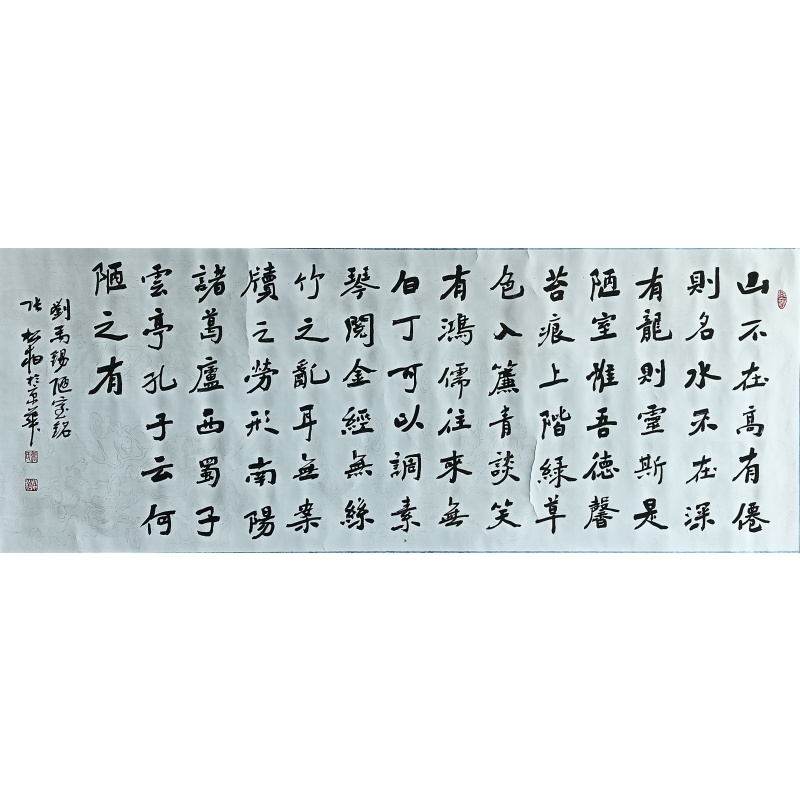 山不在高有僊
則名水不在深
有龍則靈斯是
陋室惟吾德馨
苔痕上階緑草
色入簾青談笑
有鴻儒往來無
白丁可以調素
琴閱金經無絲
竹之亂耳無案
牘之勞形南陽
諸葛廬西蜀子
雲亭孔子云何
陋之有
劉禹錫陋室銘
张松柏於京華